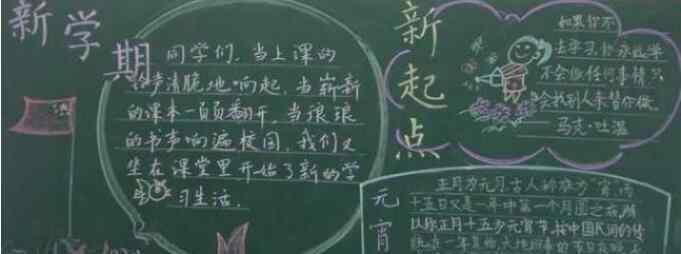 新学期
同学们，当上课的
铃声清脆地响起，当崭新
的课本一页页翻开，当琅琅
的书声响遍校园，我们又
坐在课堂里开始了新的学
习生活。
新起点
如果你不
去学习，你永远学
不会做任何事情，只
会找别人来替你做。
马克·吐温
元宵
正月为元月，古人称夜为宵，
十五日又是一年中第一个月圆之夜，所
以称正月十五为元宵节。按中国民间的传
统，在一年复始，大地回春的节日夜晚上